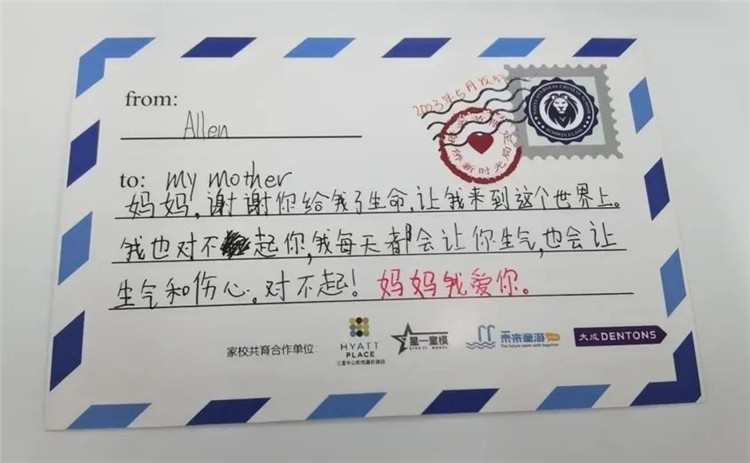 from:
Allen
2023年5月发行
to: my mother
妈妈，谢谢你给我了生命，让我来到这个世界上。
我也对不起你，我每天都会让你生气，也会让
生气和伤心。对不起！妈妈我爱你。
家校共育合作单位：
HYATT
PLACE
星一童模
未来童游
大成 DENTONS